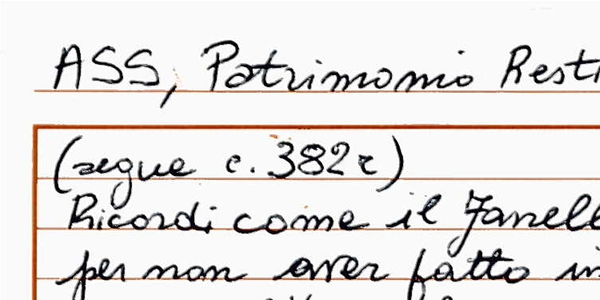 ASS, Patrimonio Resti
(segue c. 382r)
Ricordi come il Fanell
per non aver fatto in